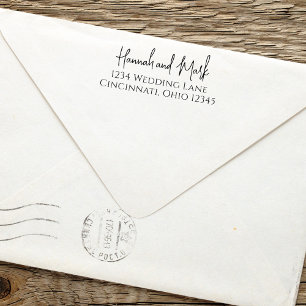 Hannah and Mark
1234 Wedding Lane
Cincinnati, Ohio 12345